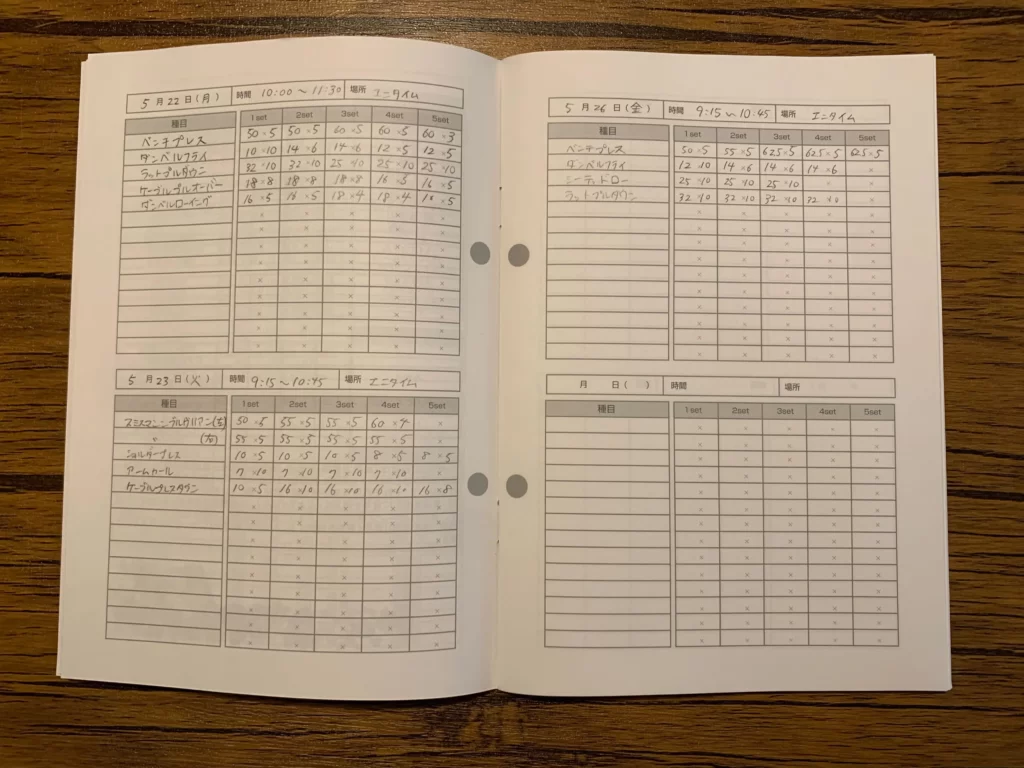 5 月 22 日 (月) 時間 10:00 〜 11:30 場所 エニタイム
種目 1set 2set 3set 4set 5set
ベンチプレス 50 × 5 50 × 5 60 × 5 60 × 5 60 × 3
ダンベルフライ 10 × 10 14 × 6 14 × 6 12 × 5 12 × 5
ラットプルダウン 32 × 10 32 × 10 25 × 10 25 × 10 25 × 10
ケーブルプルオーバー 18 × 8 18 × 8 18 × 8 16 × 5 16 × 5
ダンベルローイング 16 × 5 16 × 5 18 × 4 18 × 4 × 5
5 月 23 日 (火) 時間 9:15 〜 10:45 場所 エニタイム
種目 1set 2set 3set 4set 5set
スミスマシン ブルガリアン(右) 50 × 5 55 × 5 55 × 5 60 × 4 ×
〃 (左) 55 × 5 55 × 5 55 × 5 55 × 5 ×
ショルダープレス 10 × 5 10 × 5 10 × 5 8 × 5 8 × 5
アームカール 7 × 10 7 × 10 7 × 10 7 × 10 ×
ケーブルプレスダウン 10 × 5 16 × 10 16 × 10 16 × 10 16 × 8
5 月 26 日 (金) 時間 9:15 〜 10:45 場所 エニタイム
種目 1set 2set 3set 4set 5set
ベンチプレス 50 × 5 55 × 5 62.5 × 5 62.5 × 5 62.5 × 5
ダンベルフライ 12 × 10 14 × 6 14 × 6 14 × 6 ×
シーテッドロー 25 × 10 25 × 10 25 × 10 × ×
ラットプルダウン 32 × 10 32 × 10 32 × 10 32 × 10 ×
月 日 ( ) 時間 場所
種目 1set 2set 3set 4set 5set